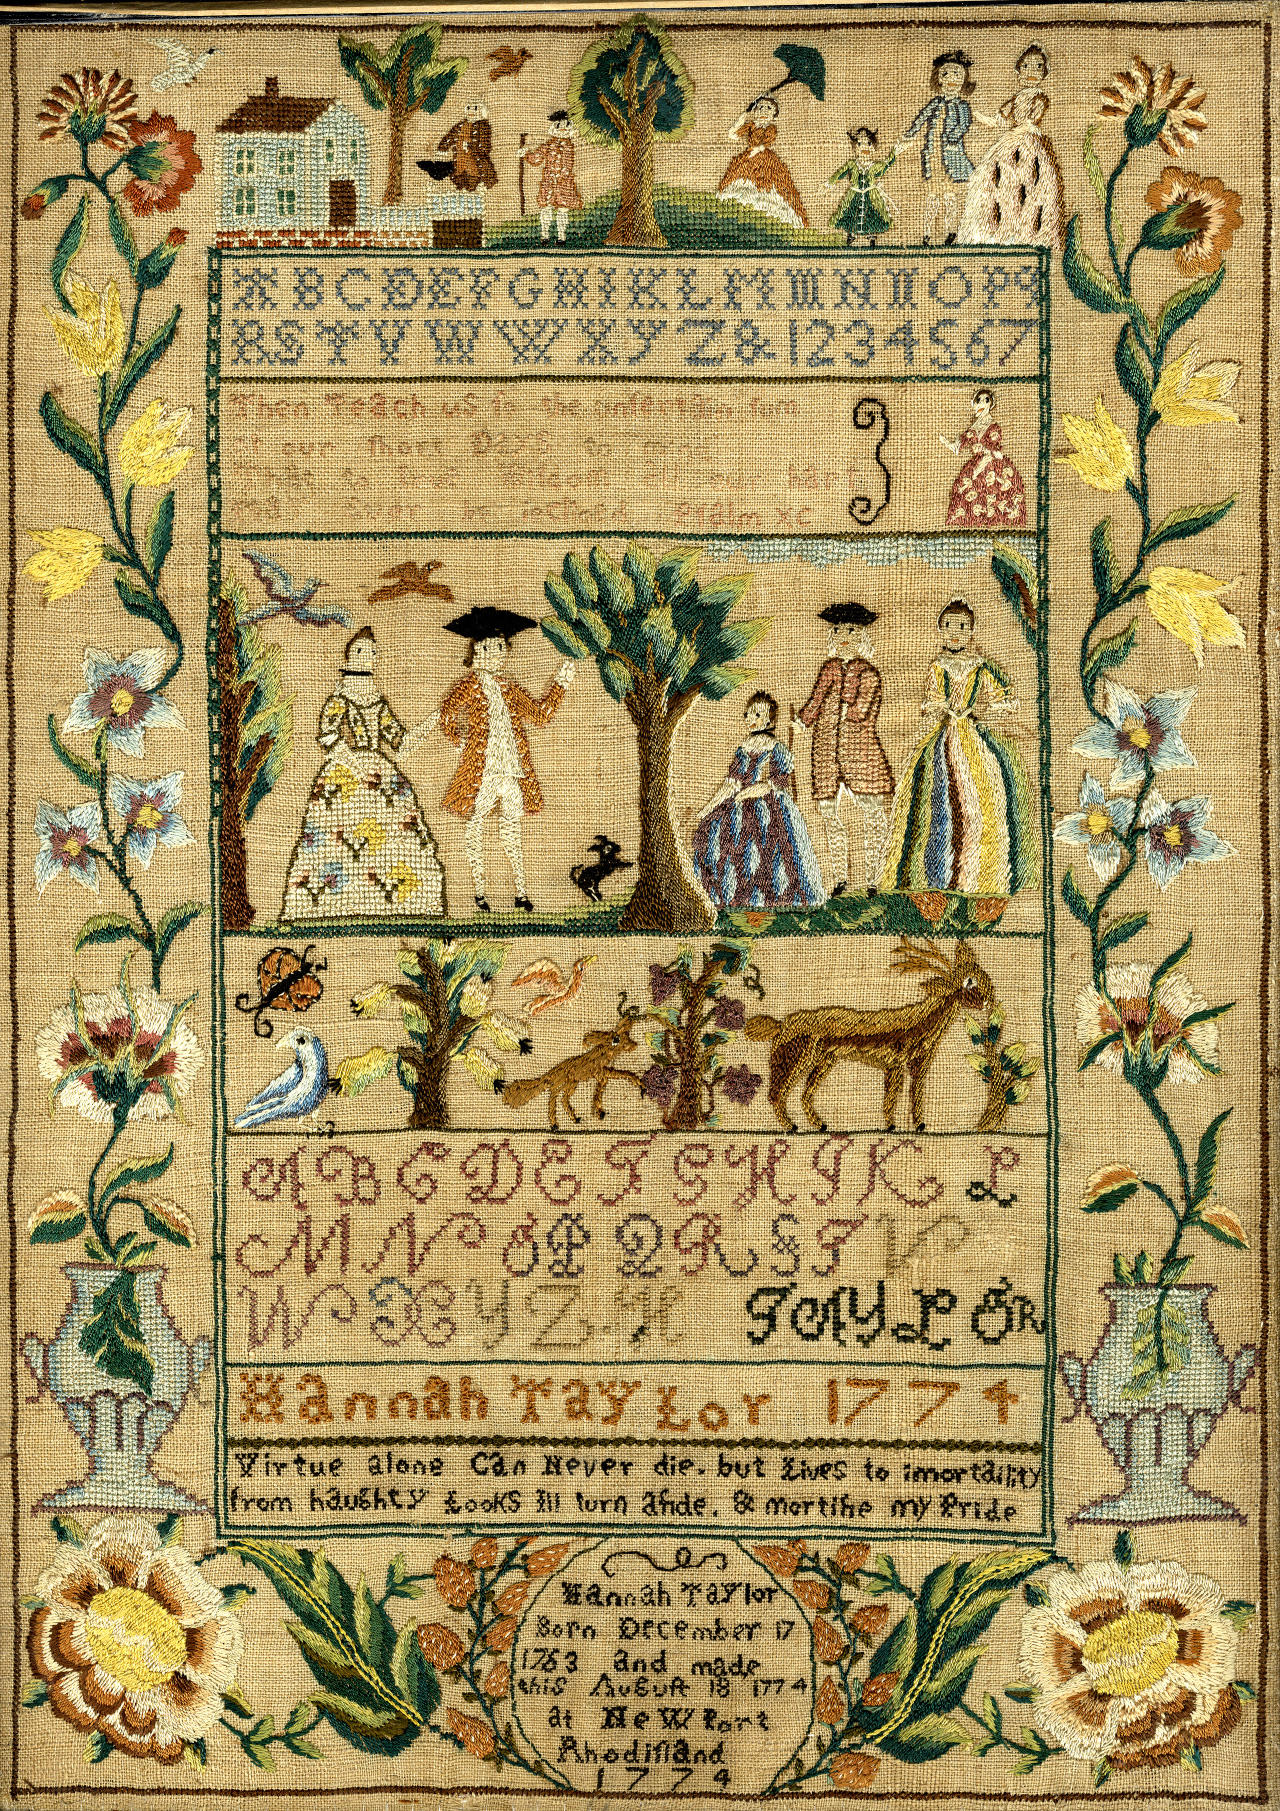 A B C D E F G H I K L M M N N O P Q
R S T V W W X Y Z & 1 2 3 4 5 6 7
Then Teach us the uncertain sum
our short Days to
our hart
Ever Psalm xc
A B C D E F G H I K L
M N O P Q R S T V
W X Y Z . H TAYLOR
Hannah Taylor 1774
Virtue alone Can Never die. but Lives to imortality
from haughty Looks Ill turn aſide. & mortifie my Pride
Hannah Taylor
Born December 17
1763 and made
this Auguſt 18 1774
at NeWPort
Rhodiſland
1774